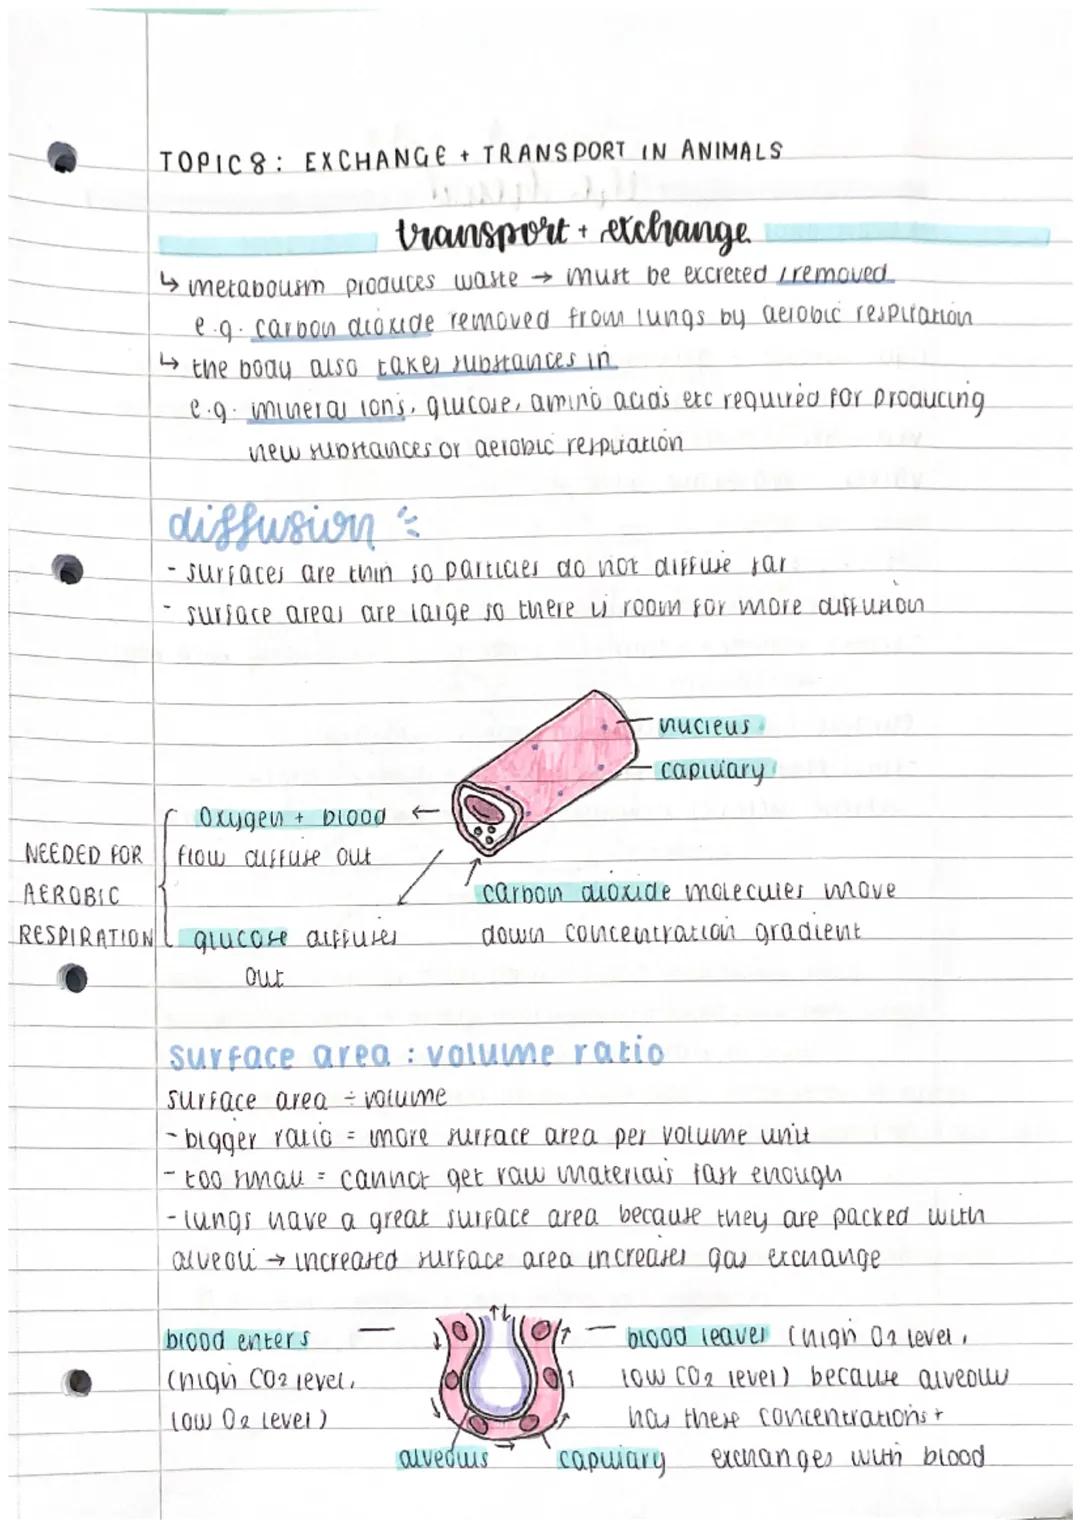 TOPIC 8: EXCHANGE + TRANSPORT IN ANIMALS
transport + exchange
↳ metabolism produces waste → must be excreted / removed
e.g. carbon dioxide removed from lungs by aerobic respiration
↳ the body also takes substances in
e.g. mineral ions, glucose, amino acids etc required for producing
new substances or aerobic respiration
diffusion
- surfaces are thin so particles do not diffuse far
- surface areas are large so there is room for more diffusion
nucleus
capillary
Oxygen + blood ←
flow diffuse out
NEEDED FOR
AEROBIC
RESPIRATION
glucose diffuses
out
carbon dioxide molecules move
down concentration gradient
surface area : volume ratio
surface area ÷ volume
- bigger ratio = more surface area per volume unit
- too small = cannot get raw materials fast enough
- lungs have a great surface area because they are packed with
alveoli → increased surface area increases gas exchange
blood enters
(high CO2 level,
low O2 level)
blood leaves (high O2 level,
low CO2 level) because alveoli
has these concentrations +
exchanges with blood
alveolus
capillary